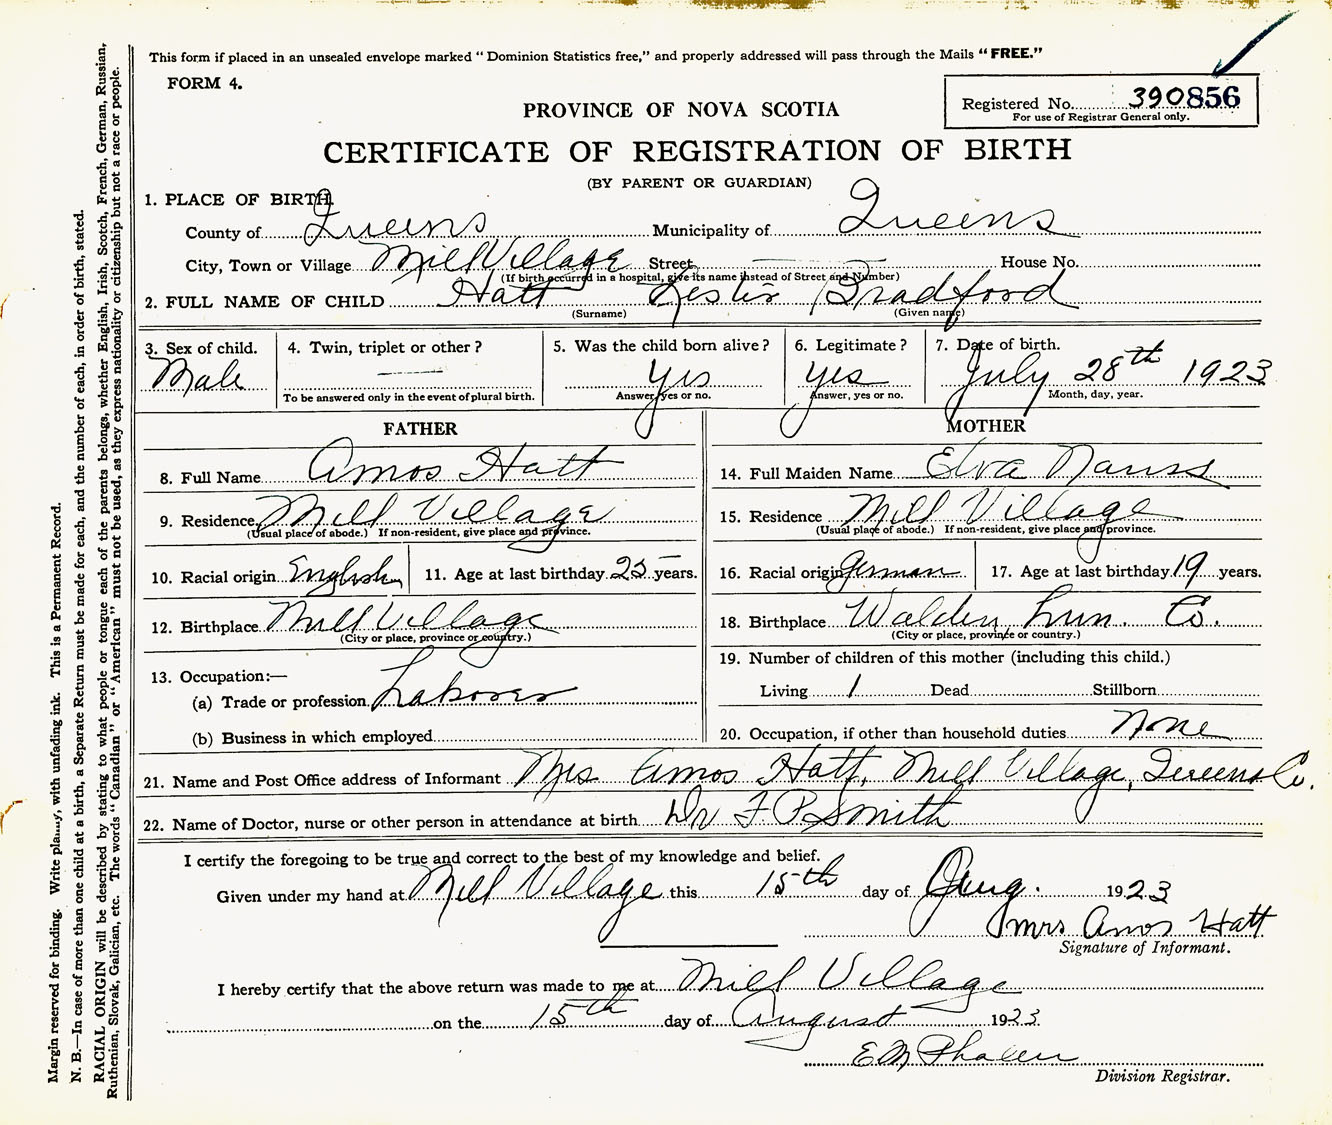 This form if placed in an unsealed envelope marked "Dominion Statistics free," and properly addressed will pass through the Mails "FREE."
FORM 4.
Registered No. 390856
For use of Registrar General only.
PROVINCE OF NOVA SCOTIA
CERTIFICATE OF REGISTRATION OF BIRTH
(BY PARENT OR GUARDIAN)
1. PLACE OF BIRTH
County of Queens Municipality of Queens
City, Town or Village Mill Village Street House No.
(If birth occurred in a hospital, give its name instead of Street and Number)
2. FULL NAME OF CHILD Hatt Lester Bradford
(Surname) (Given name)
3. Sex of child. 4. Twin, triplet or other? 5. Was the child born alive? 6. Legitimate? 7. Date of birth.
Male yes yes July 28th 1923
To be answered only in the event of plural birth. Answer, yes or no. Answer, yes or no. Month, day, year.
FATHER MOTHER
8. Full Name Amos Hatt 14. Full Maiden Name Elva Nauss
9. Residence Mill Village 15. Residence Mill Village
(Usual place of abode.) If non-resident, give place and province. (Usual place of abode.) If non-resident, give place and province.
10. Racial origin English 11. Age at last birthday 25 years. 16. Racial origin German 17. Age at last birthday 19 years.
12. Birthplace Mill Village 18. Birthplace Walden Lun. Co.
(City or place, province or country.) (City or place, province or country.)
13. Occupation:— 19. Number of children of this mother (including this child.)
(a) Trade or profession Laborer Living 1 Dead Stillborn
(b) Business in which employed 20. Occupation, if other than household duties None
21. Name and Post Office address of Informant Mrs Amos Hatt, Mill Village, Queens Co.
22. Name of Doctor, nurse or other person in attendance at birth Dr F. P. Smith
I certify the foregoing to be true and correct to the best of my knowledge and belief.
Given under my hand at Mill Village this 15th day of Aug. 1923
Mrs Amos Hatt
Signature of Informant.
I hereby certify that the above return was made to me at Mill Village
on the 15th day of August 1923
E M Phalen
Division Registrar.
Margin reserved for binding. Write plainly, with unfading ink. This is a Permanent Record.
N. B.—In case of more than one child at a birth, a Separate Return must be made for each, and the number of each, in order of birth, stated.
RACIAL ORIGIN will be described by stating to what people or tongue each of the parents belongs, whether English, Irish, Scotch, French, German, Russian,
Ruthenian, Slovak, Galician, etc. The words "Canadian" or "American" must not be used, as they express nationality or citizenship but not a race or people.